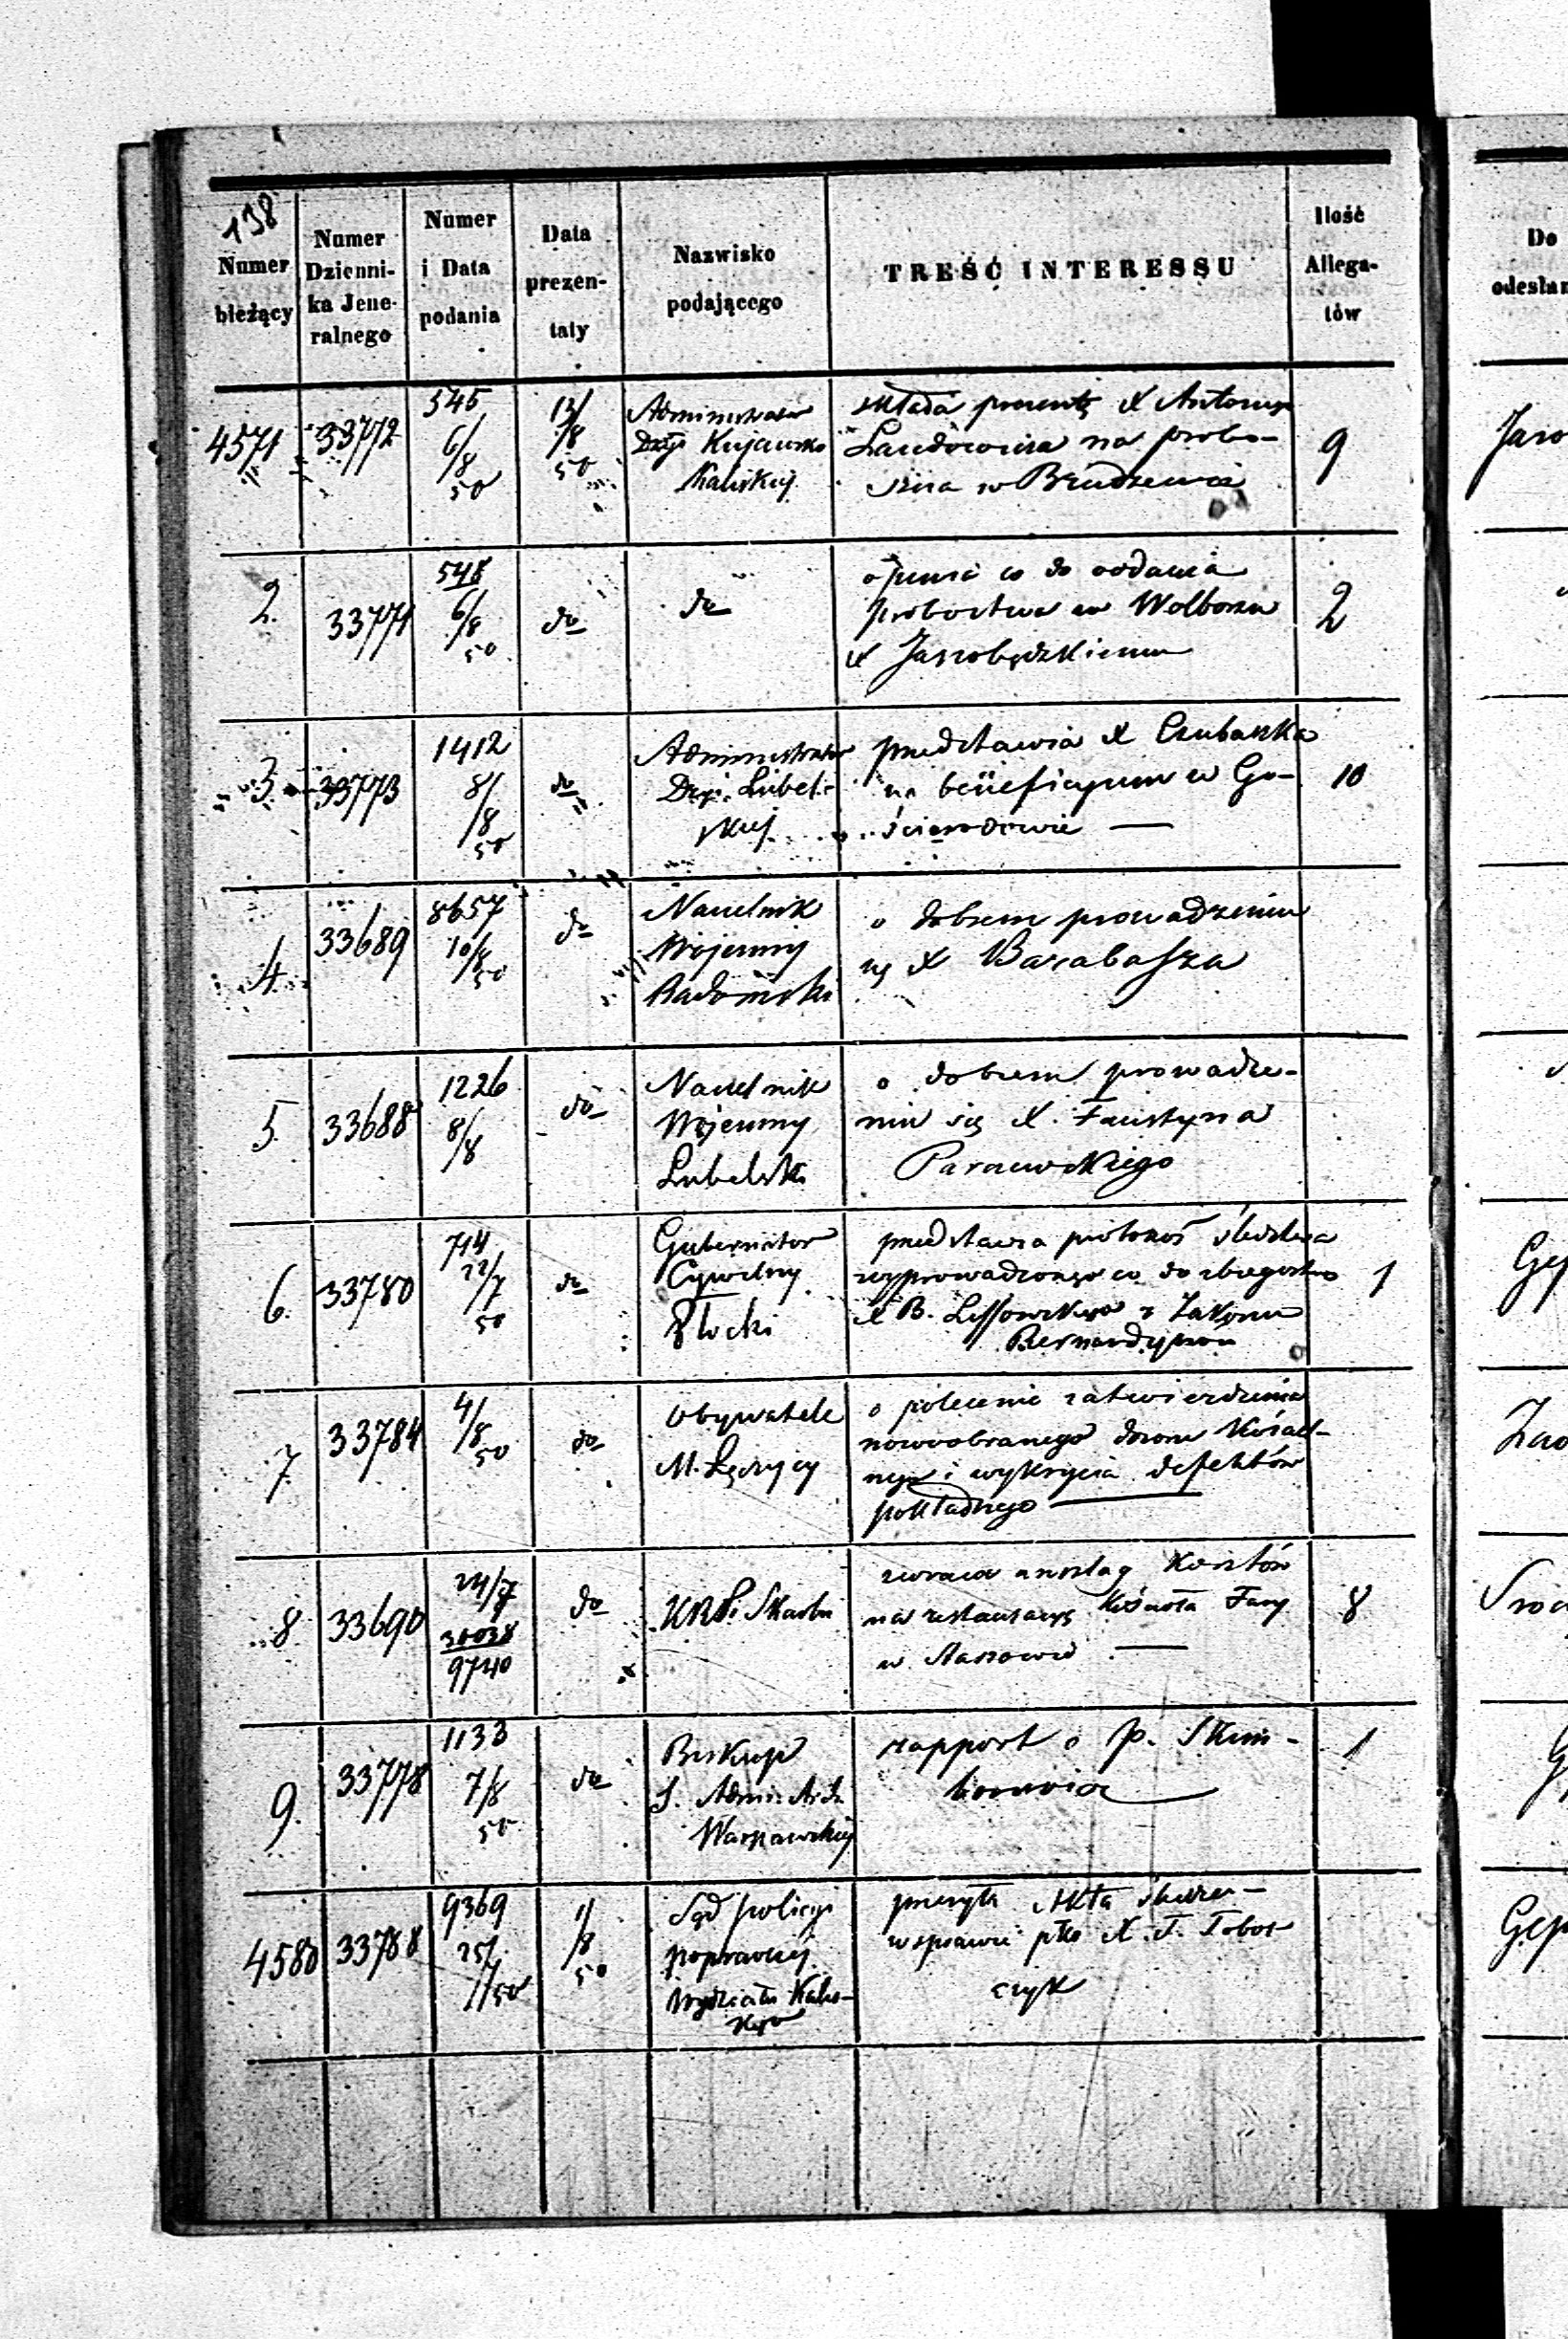 138
Numer
bieżący
Numer
Dzienni-
ka Jene-
ralnego
Numer
i Data
podania
Data
prezen-
taty
Nazwisko
podającego
TREŚĆ INTERESSU
Ilość
Allega-
tów
Do
odesłan
4571
33772
545
6/8
50
12/8
50
Administrator
Dyi Kujawsko
Kaliskiej
składa prezentę X Antoniego
na probo-
szcza w Brudzewie
9
2.
33771
548
6/8
50
do
do
opinia co do oddania
probostwa w Wolborzu
X Jarzobędzkiemu
2
3
33773
1412
8/8
50
do
Administrator
Dyi Lubel-
skiej
przedstawia X Czubaszka
na beneficyum w Go-
ścieradowie —
10
4
33689
8657
10/8
50
do
Naczelnik
Wojenny
Radomski
o dobrem prowadzeniu
się X Barabasza
5.
33688
1226
8/8
do
Naczelnik
Wojenny
Lubelski
o dobrem prowadze-
niu się X. Faustyna
6.
33780
714
22/7
50
do
Gubernator
Cywilny
Płocki
przedstawia protokół śledztwa
wyprowadzonego co do zbiegostwa
X B. Lissowskiego z Zakonu
Bernardynów
1
7.
33784
4/8
50
do
Obywatele
M. Łęczycy
o polecenie zatwierdzenia
nowoobranego dozoru Kościel-
nego i wykrycia defektów
pokładnego —
8
33690
24/7
30038
9740
do
KRP. i Skarbu
zwraca anszlag Kosztów
na restauracyę Kościoła Fary
w Staszowie —
8
9.
33778
1133
7/8
50
do
Biskup
S. Admin. Archi
Warszawskiej
rapport o p. Skim-
borowicz
1
4580
33788
9369
25/7
50
1/8
50
Sąd policyi
poprawczej
Wydziału Kalis-
kiego
przesyła Akta śledcze
w sprawie pko X. F. Tobol-
czyk